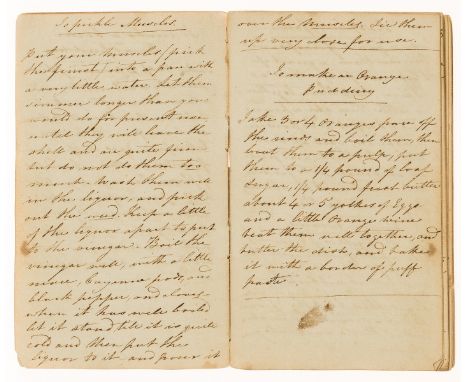 To pickle Muscles
Put your muscles (pick
the finest) into a pan with
a very little water. Let them
simmer longer than you
would do for present use
until they will leave the
shell and are quite firm
but do not do them too
much. Wash them well
in the liquor, and pick
out the weed. Keep a little
of the liquor apart to put
to the vinegar. Boil the
vinegar well, with a little
mace, Cayenne pods, and
black pepper, and cloves.
when it has well boiled
let it stand till it is quite
cold and then put the
liquor to it and pour it
over the Muscles. Tie them
up very close for use.
To make an Orange
Pudding
Take 3 or 4 Oranges pare off
the rinds and boil them, then
beat them to a pulp, put
them to a 1/4 pound of loaf
Sugar, 1/4 pound fresh butter
about 4 or 5 yolkes of Eggs
and a little Orange wine
beat them well together, and
butter the dish, and bake
it with a border of puff
paste